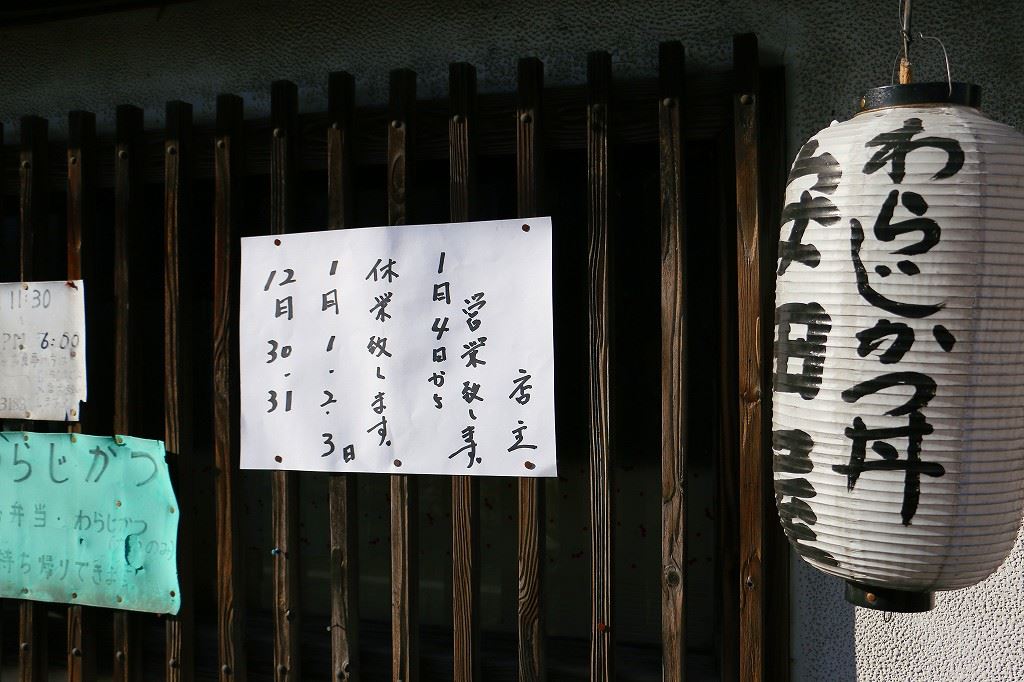 12月30.31
1月1.2.3日
休業致します。
1日4日から
営業致します。
店主
わらじかつ丼
安田屋
11:30
PM 6:00
わらじかつ
弁当・わらじかつ
持ち帰りできます